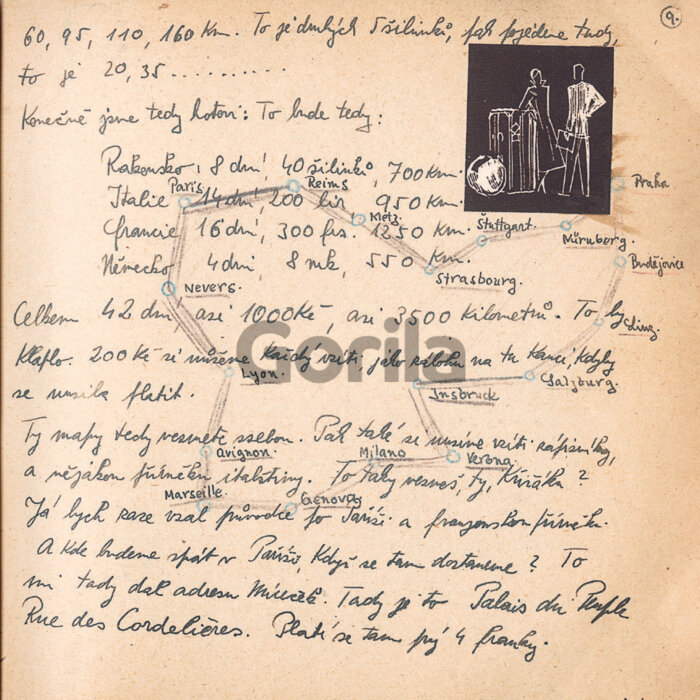 9.
60, 95, 110, 160 Km. To je druhých 5 šilinků, pak pojedeme tudy,
to je 20, 35 ..........
Konečně jsme tedy hotovi: To bude tedy:
Rakousko, 8 dní, 40 šilinků, 700 Km.
Italie 14 dní, 200 lir, 950 Km.
Francie 16 dní, 300 frs. 1250 Km.
Německo 4 dní, 8 mk, 550 Km.
Praha
Paris
Reims
Metz.
Štuttgart.
Nürnberg.
Budějovice
Strasbourg.
Nevers.
Linz.
Celkem 42 dní, asi 1000 Kč, asi 3500 Kilometrů. To by
klaplo. 200 Kč si můžeme každý vzíti, jako zálohu na tu kauci, kdyby
se musila platit.
Gorila
Lyon.
Salzburg.
Insbruck
Ty mapy tedy vezmete ssebou. Pak také si musíme vzíti zápisníky,
a nějakou příručku italštiny. To taky vezmeš, ty, Křižáku?
Avignon.
Milano
Verona.
Marseille.
Genova
Já bych zase vzal průvodce po Paříži a francouzskou příručku.
A kde budeme spát v Paříži, když se tam dostaneme? To
mi tady dal adresu. Tady je to Palais du Peuple
Rue des Cordelières. Platí se tam prý 4 franky.